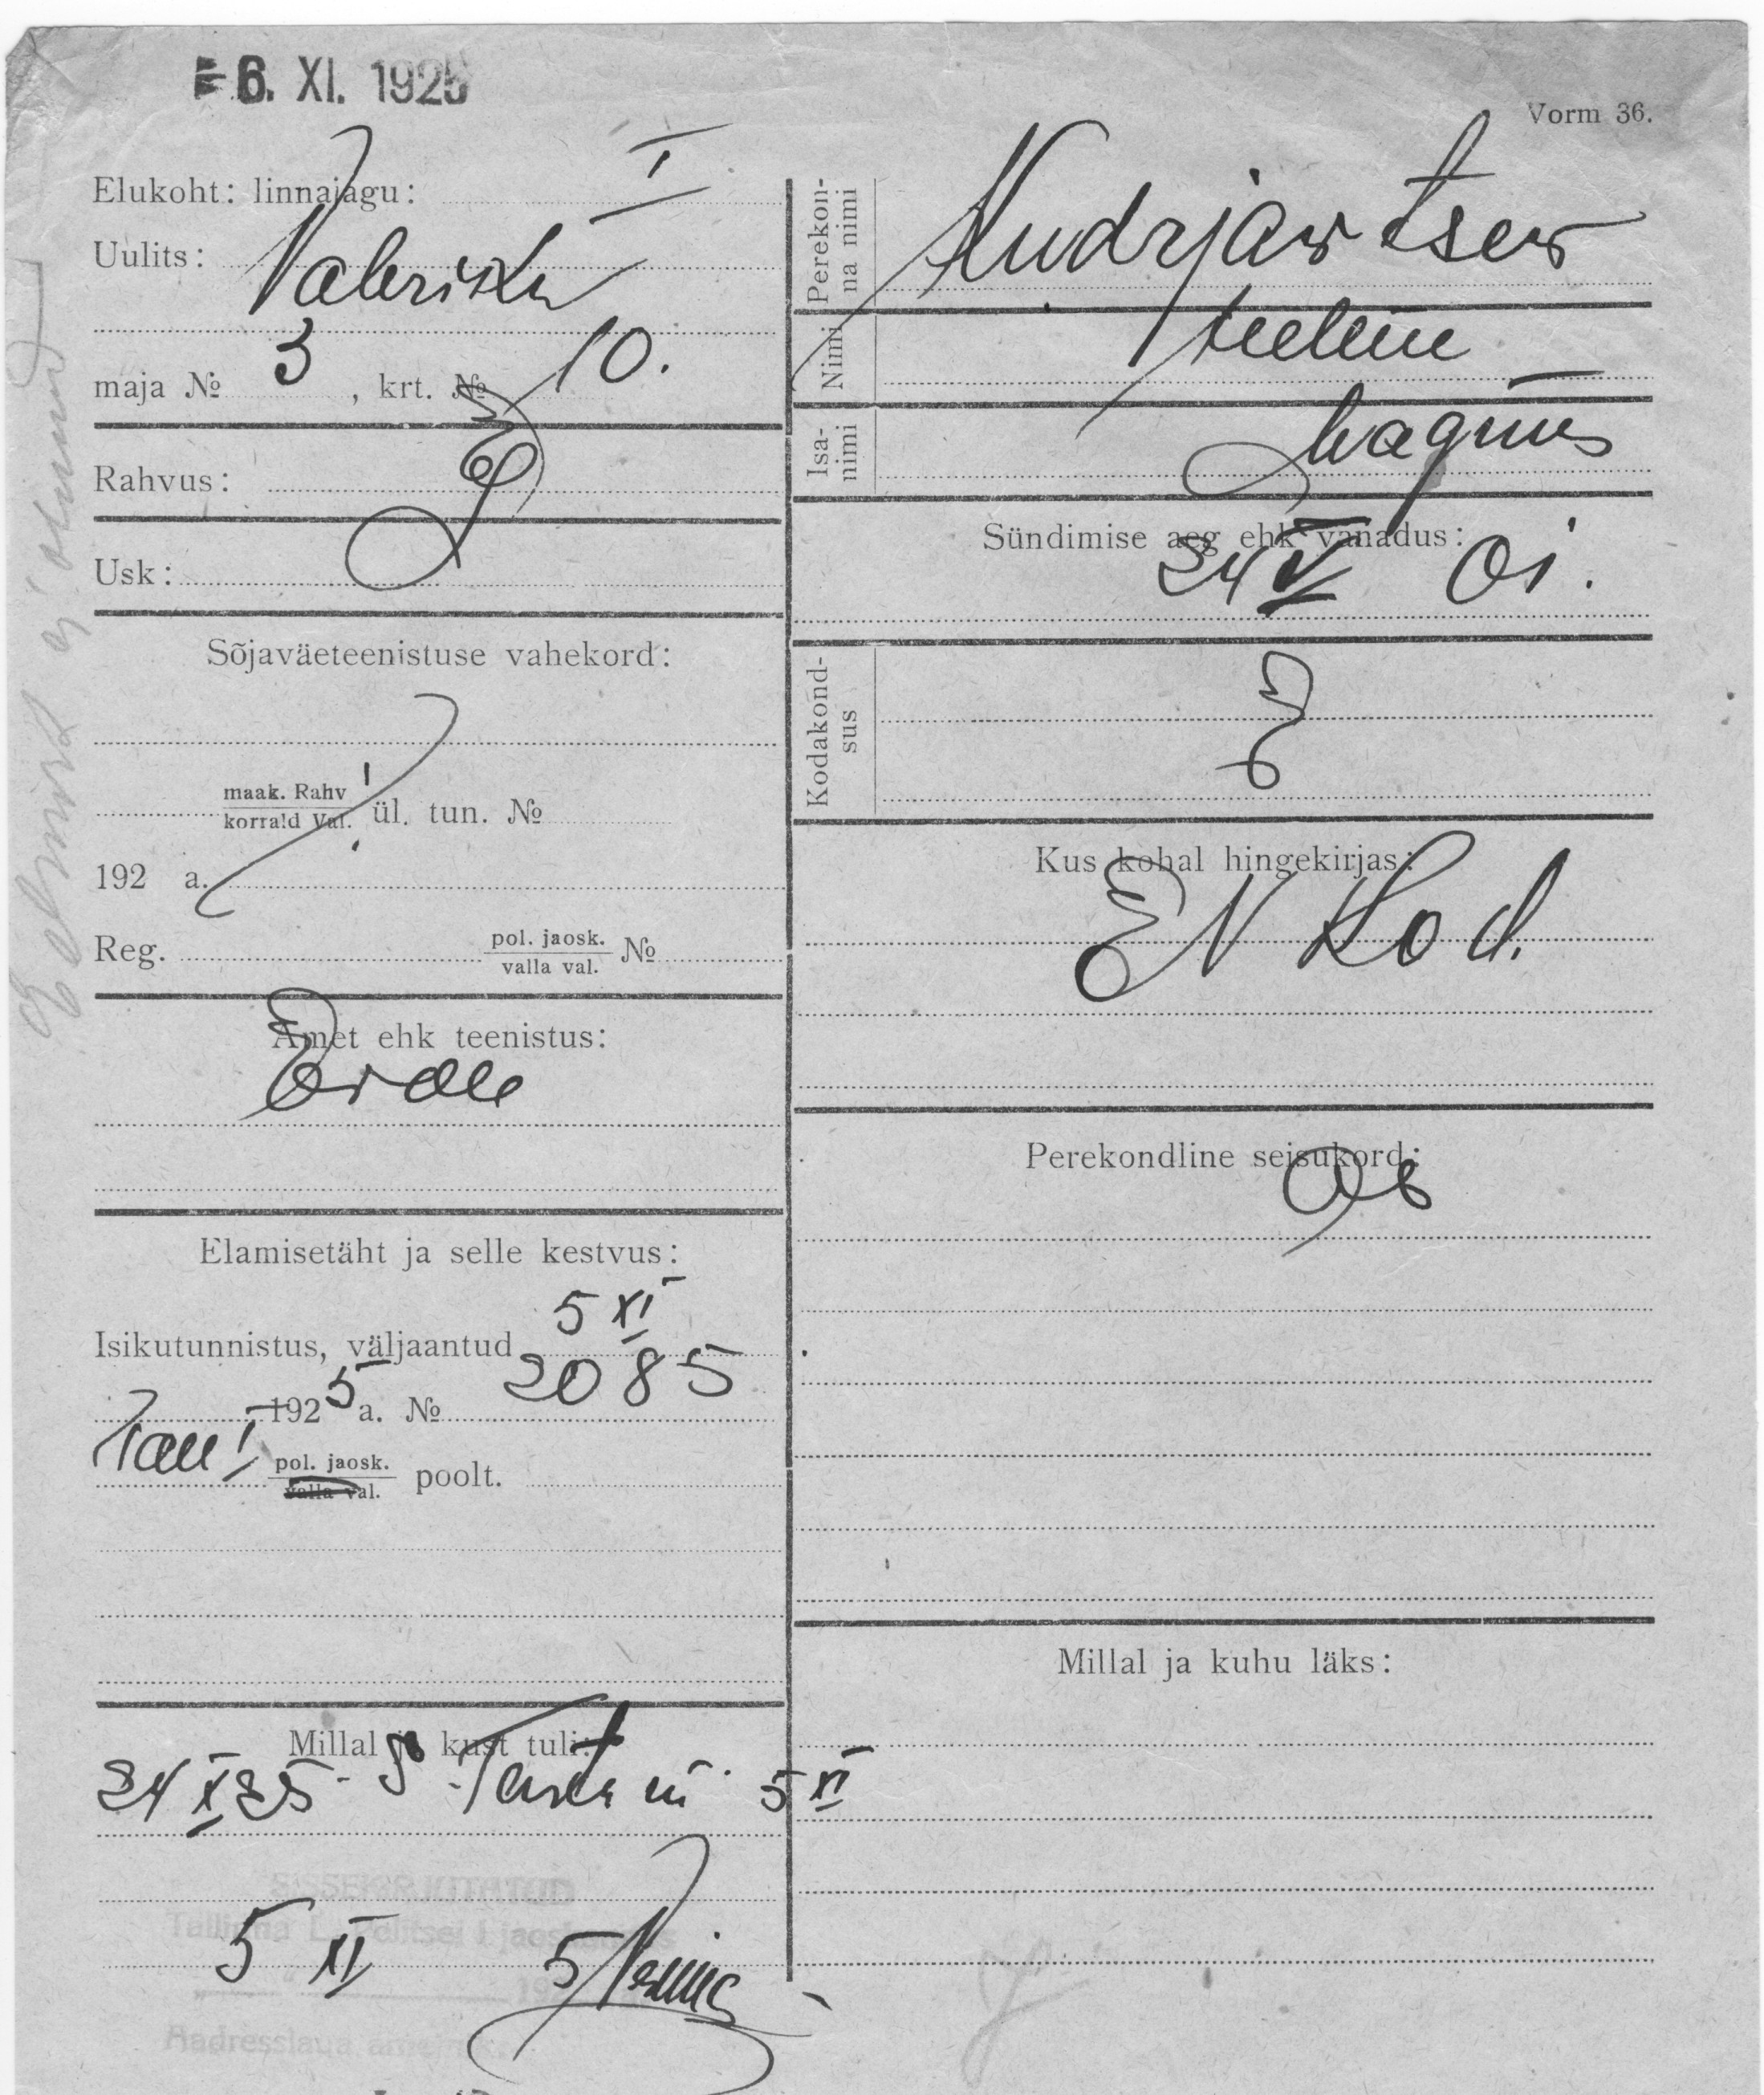 6. XI. 1925
Vorm 36.
Elukoht: linnajagu: I
Uulits:
maja № 3, krt. № 10.
Rahvus: E
Usk:
Sõjaväeteenistuse vahekord:
maak. Rahv
korrald Val. ül. tun. №
192 a.
Reg. pol. jaosk.
valla val. №
Amet ehk teenistus:
Elamisetäht ja selle kestvus:
Isikutunnistus, väljaantud 5 XI
1925 a. № 2085
Tall I pol. jaosk.
valla val. poolt.
Millal ja kust tuli:
24 X 25 5 XI
SISSEKIRJUTATUD
Tallinna L. Politsei I jaoskonnas
5 XI 5
Aadresslaua
Perekonna nimi Kudrjawtsew
Nimi
Isanimi Magnus
Sündimise aeg ehk vanadus:
24 V 01.
Kodakondsus E
Kus kohal hingekirjas:
EV Kod.
Perekondline seisukord:
Millal ja kuhu läks: